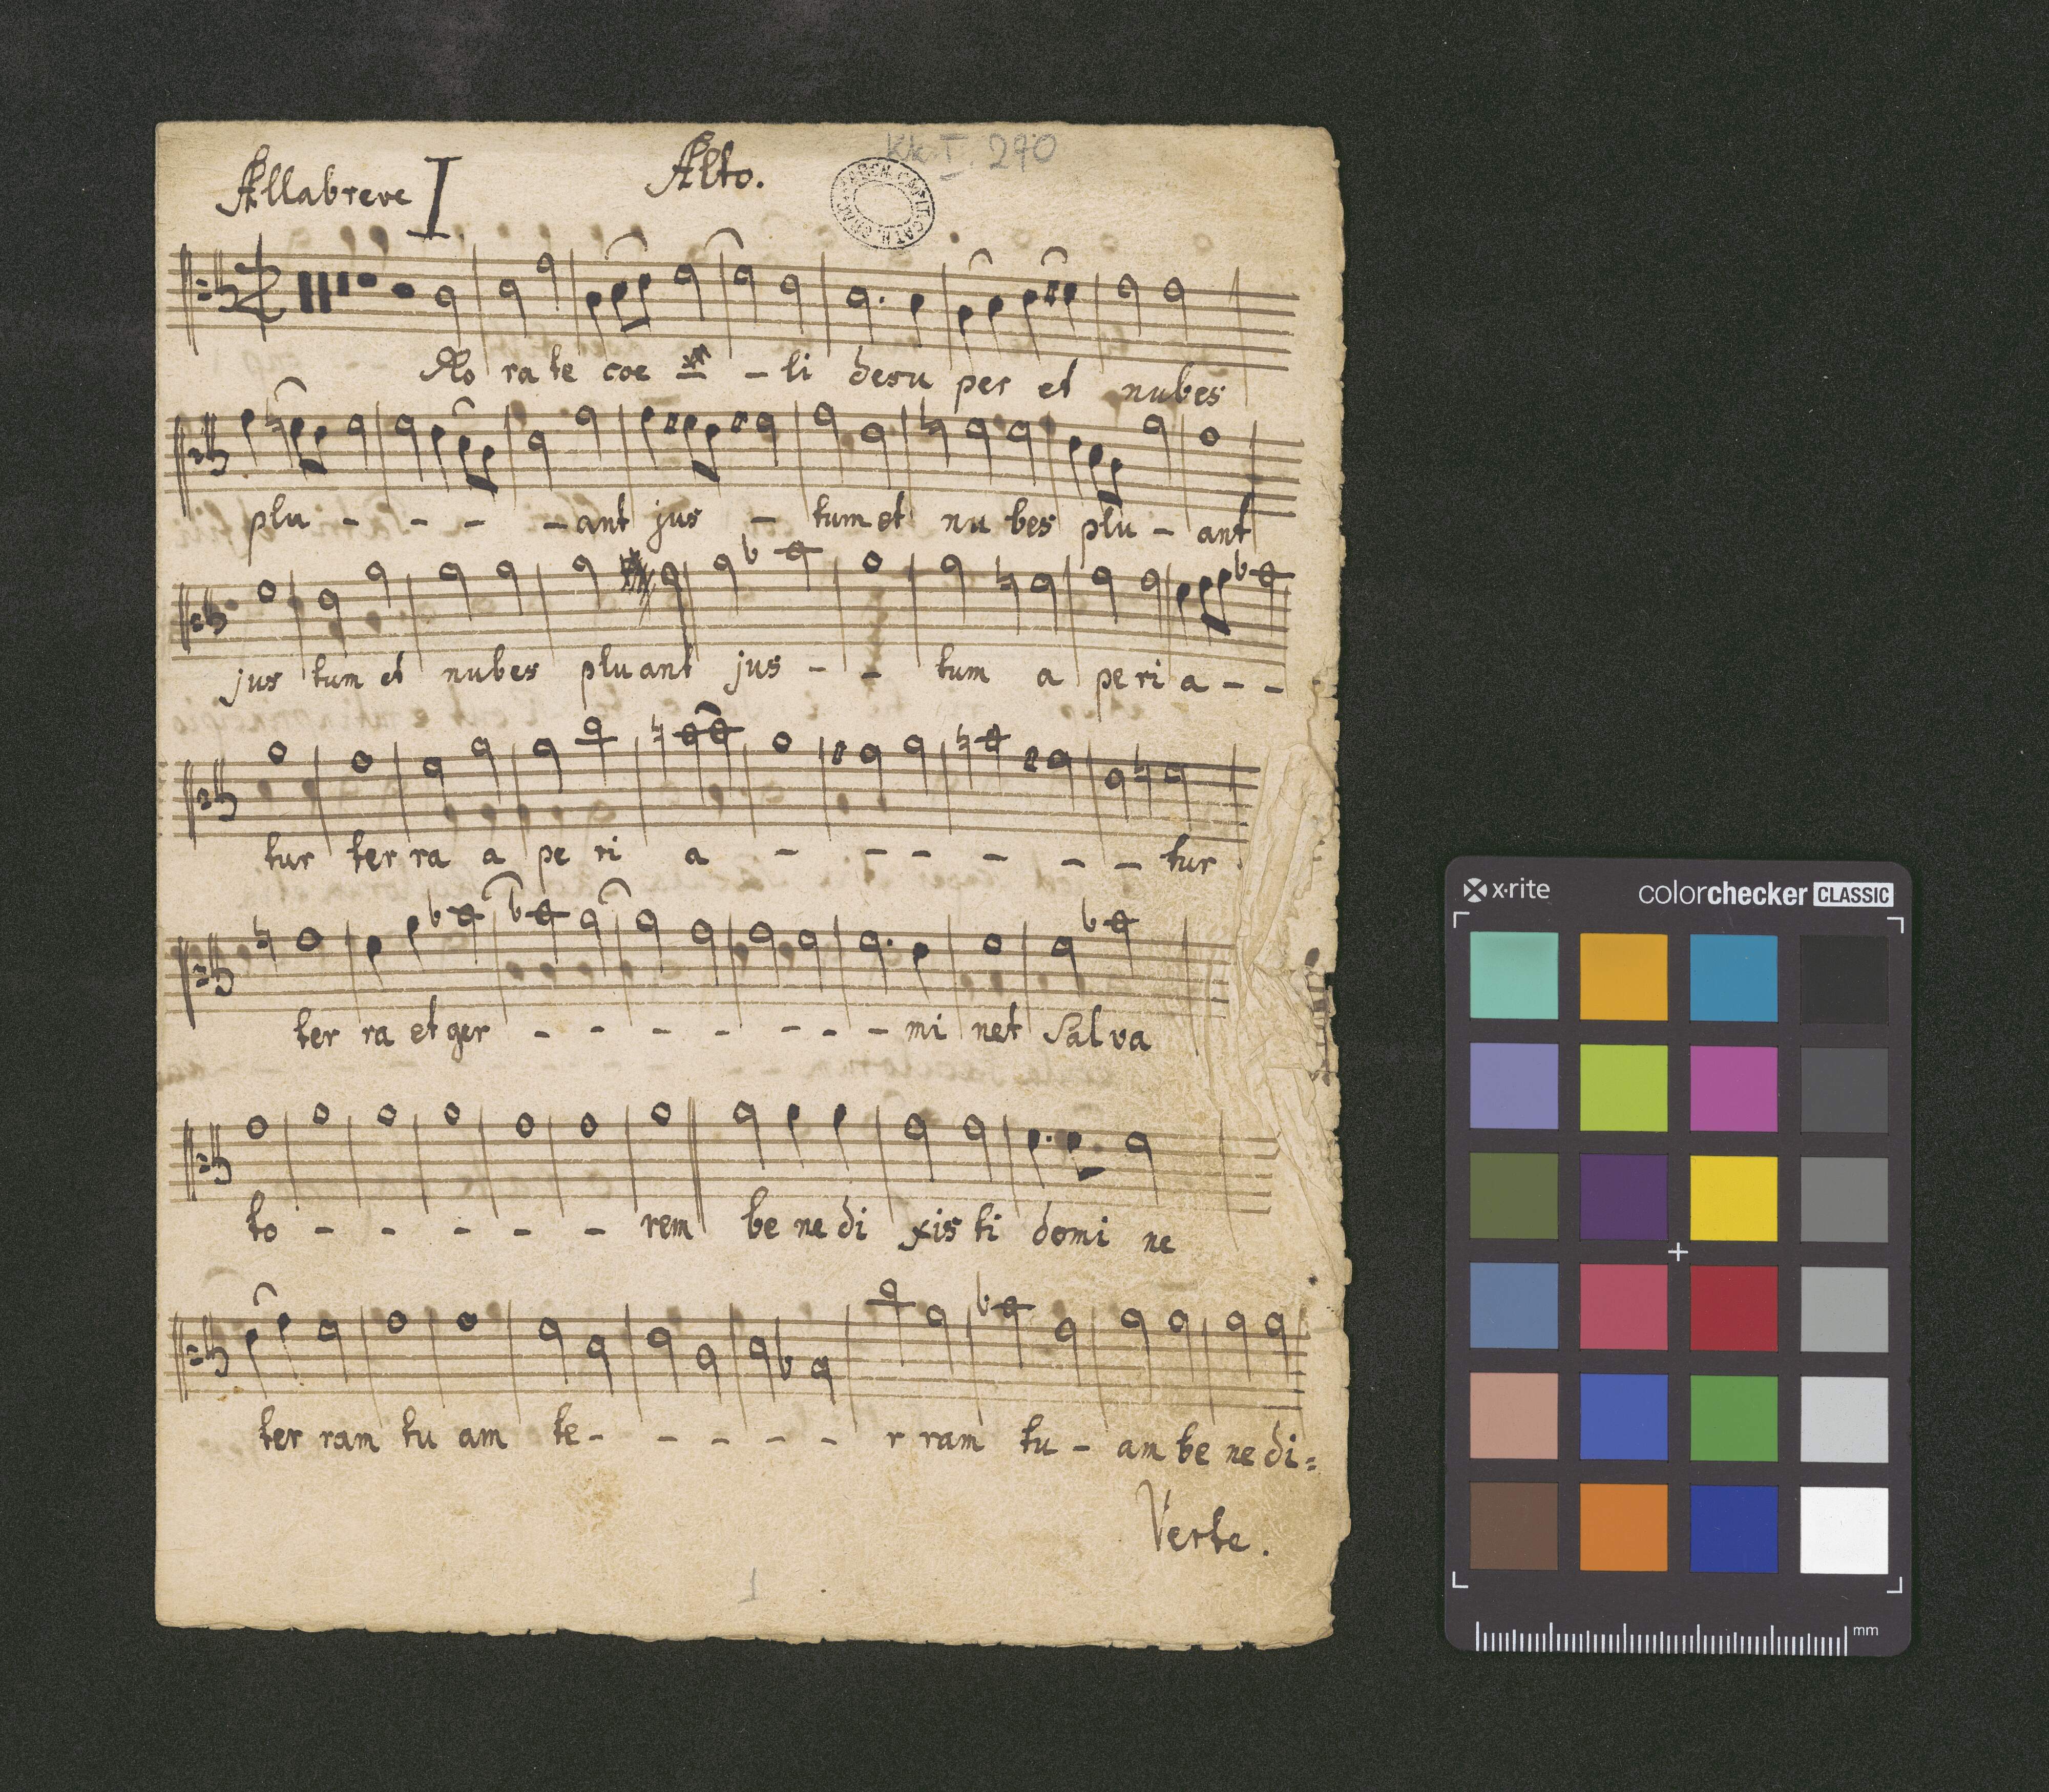 Kk. I. 270
Allabreve I Alto.
Ro ra te coe - - li desu per et nubes
plu - - - - ant jus - tum et nu bes plu - ant
jus tum et nubes pluant jus - - tum a pe ri a - -
tur ter ra a pe ri a - - - - - - tur
ter ra et ger - - - - - - - mi net Sal va
to - - - - - rem be ne di xis ti domi ne
ter ram tu am te - - - - - r ram tu - am be ne di =
Verte.
1
x-rite colorchecker CLASSIC
mm